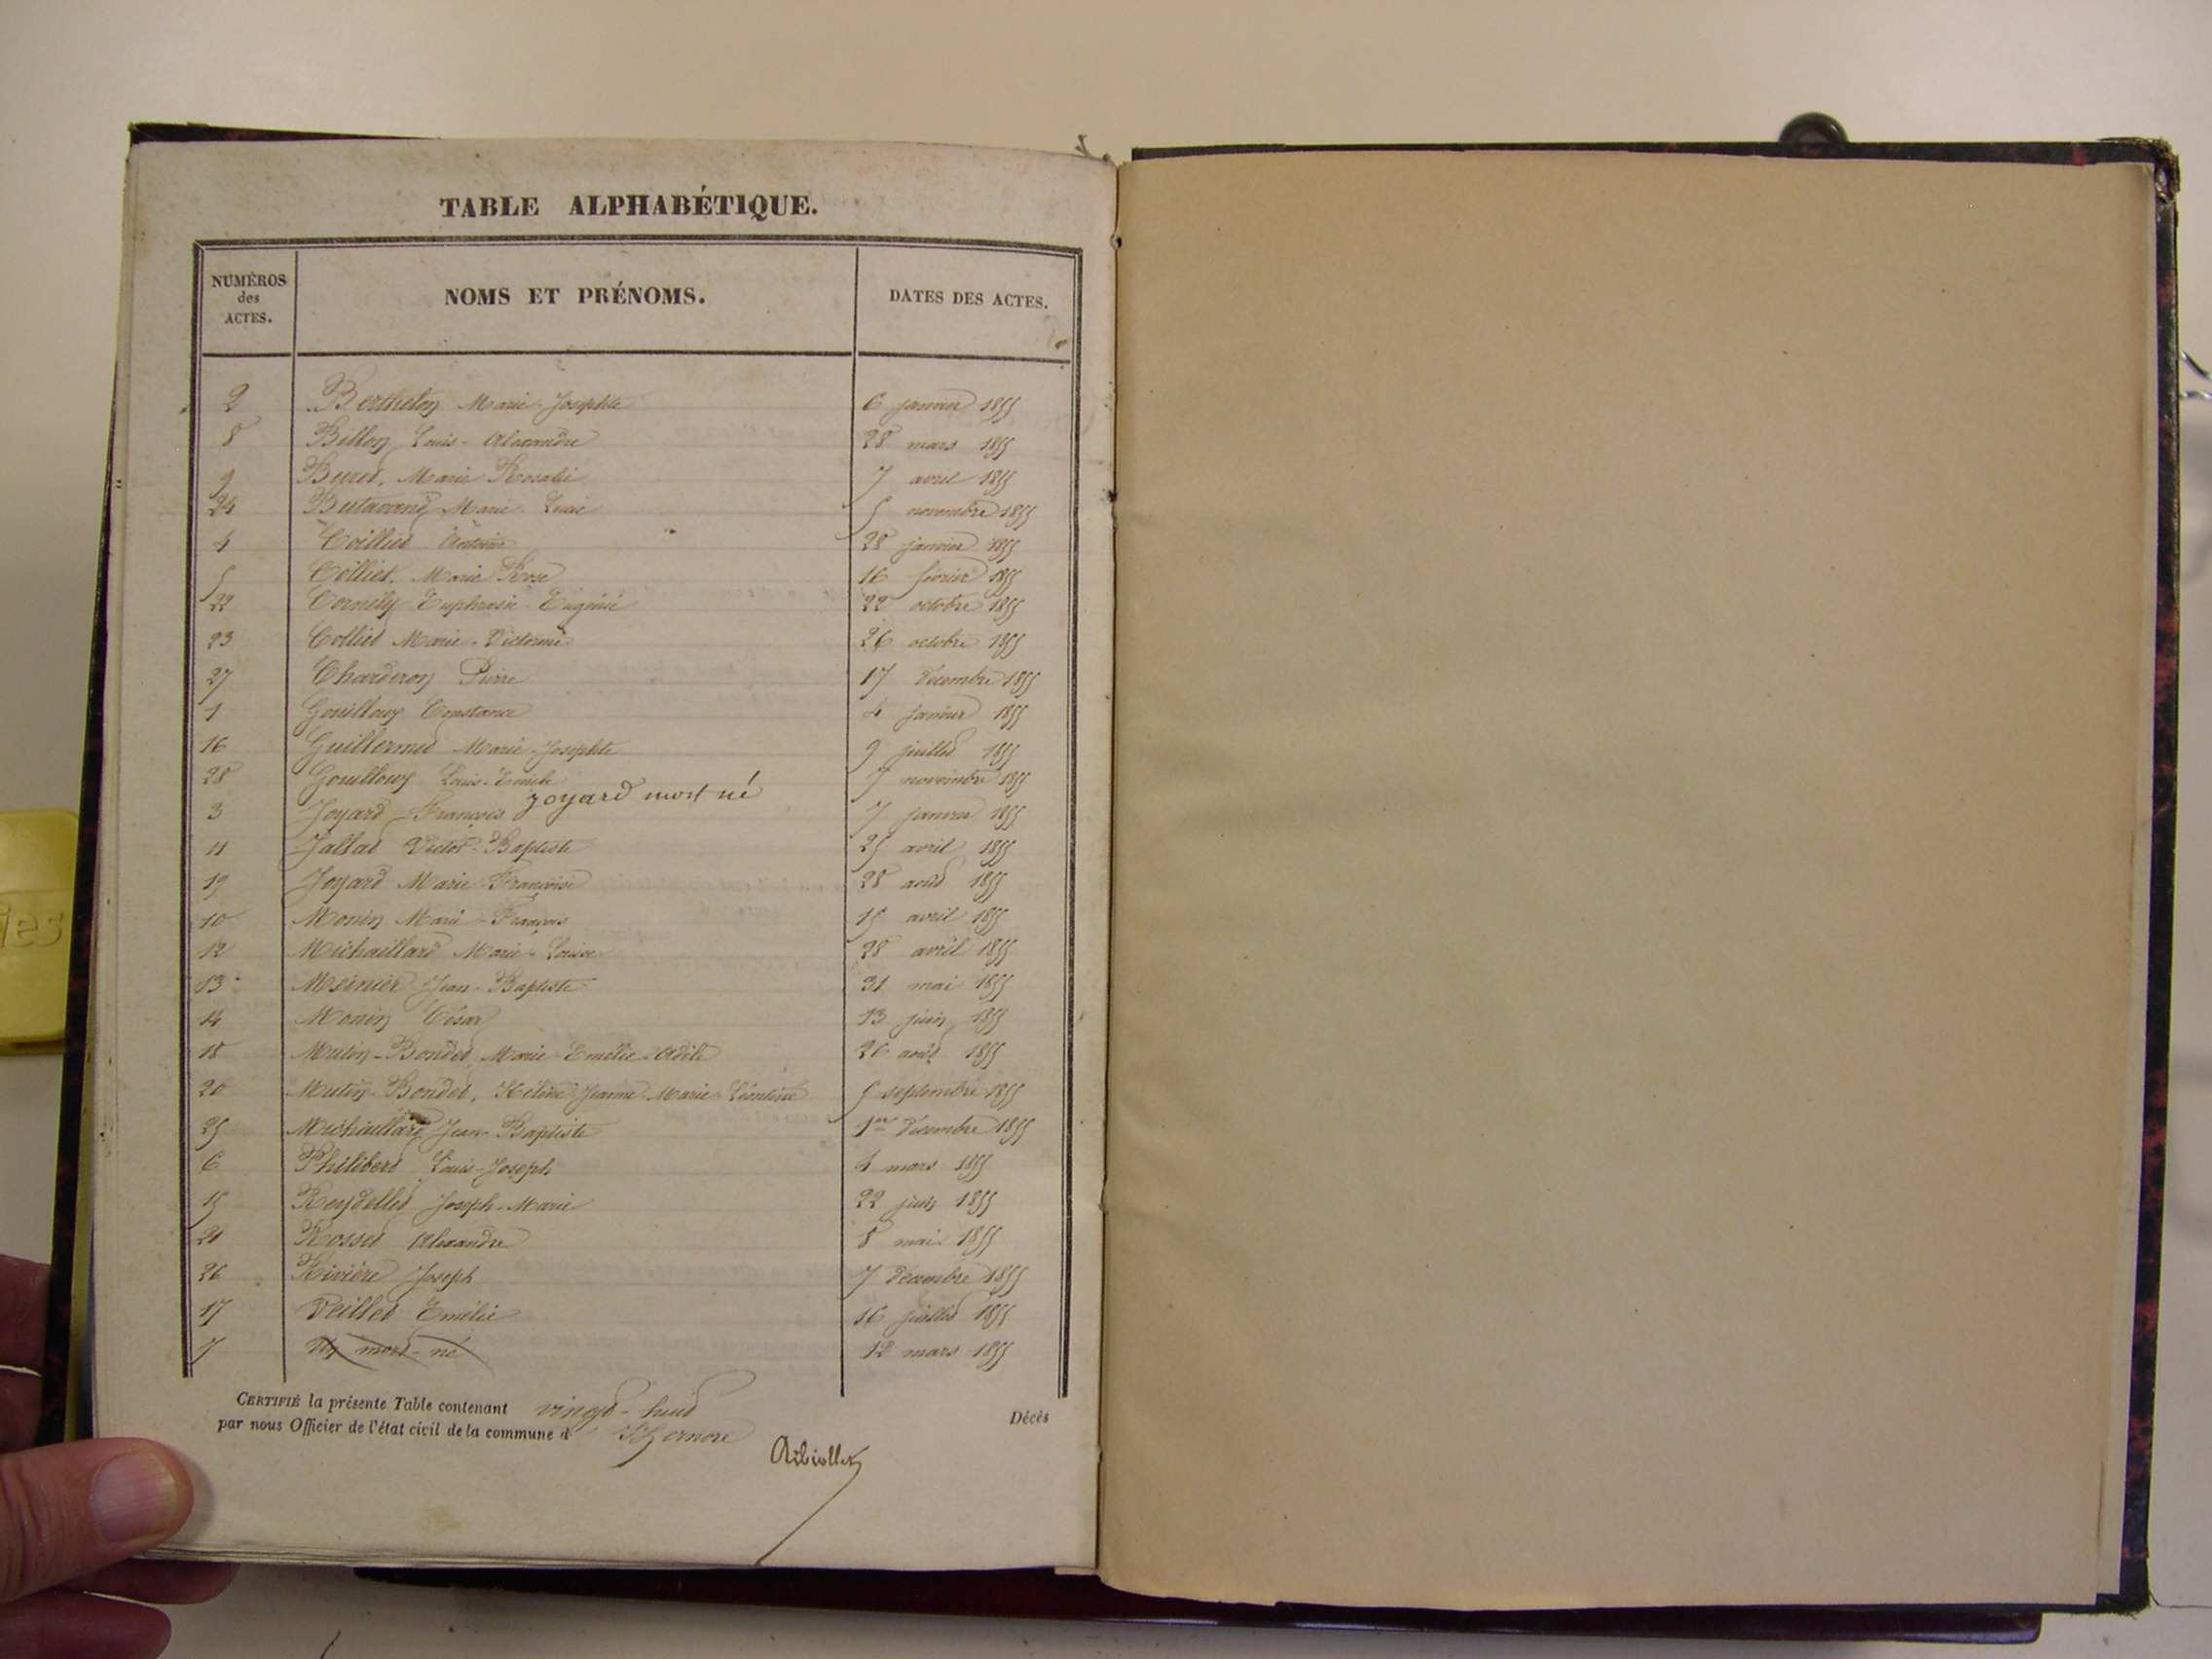 TABLE ALPHABÉTIQUE.
NUMÉROS des ACTES. NOMS ET PRÉNOMS. DATES DES ACTES.
2 Berthelon Marie-Josephte 6 janvier 1855
8 Billon Louis-Alexandre 28 mars 1855
9 Buret, Marie Rosalie 7 avril 1855
24 Butavand Marie Lucie 5 novembre 1855
4 Coillet Antoine 28 janvier 1855
5 Colliet, Marie Rose 16 février 1855
22 Cornély Euphrasie-Eugénie 22 octobre 1855
23 Collet Marie-Victorine 26 octobre 1855
27 Charderon Pierre 17 décembre 1855
1 Gouilloux Constance 4 janvier 1855
16 Guillermet Marie-Josephte 9 juillet 1855
28 Gouilloux Louis-Emile 7 novembre 1855
joyard mort né
3 Joyard François 7 janvier 1855
11 Jallad Victor-Baptiste 25 avril 1855
19 Joyard Marie-Françoise 28 août 1855
10 Monin Marie-François 15 avril 1855
12 Michaillard Marie-Louise 28 avril 1855
13 Meinier Jean-Baptiste 31 mai 1855
14 Monin César 13 juin 1855
18 Mutin-Bondet Marie-Emélie-Adèle 26 août 1855
20 Mutin-Bondet, Hélène Jeanne Marie Léontine 5 septembre 1855
25 Michaillard Jean-Baptiste 1er décembre 1855
6 Philibert Louis-Joseph 4 mars 1855
15 Reydellet Joseph-Marie 22 juin 1855
21 Rosset Alexandre 8 mai 1855
26 Rivière Joseph 7 décembre 1855
17 Veillet Emélie 16 juillet 1855
7 Un mort-né 12 mars 1855
CERTIFIÉ la présente Table contenant vingt-huit Décès
par nous Officier de l'état civil de la commune d' Izernore
ies